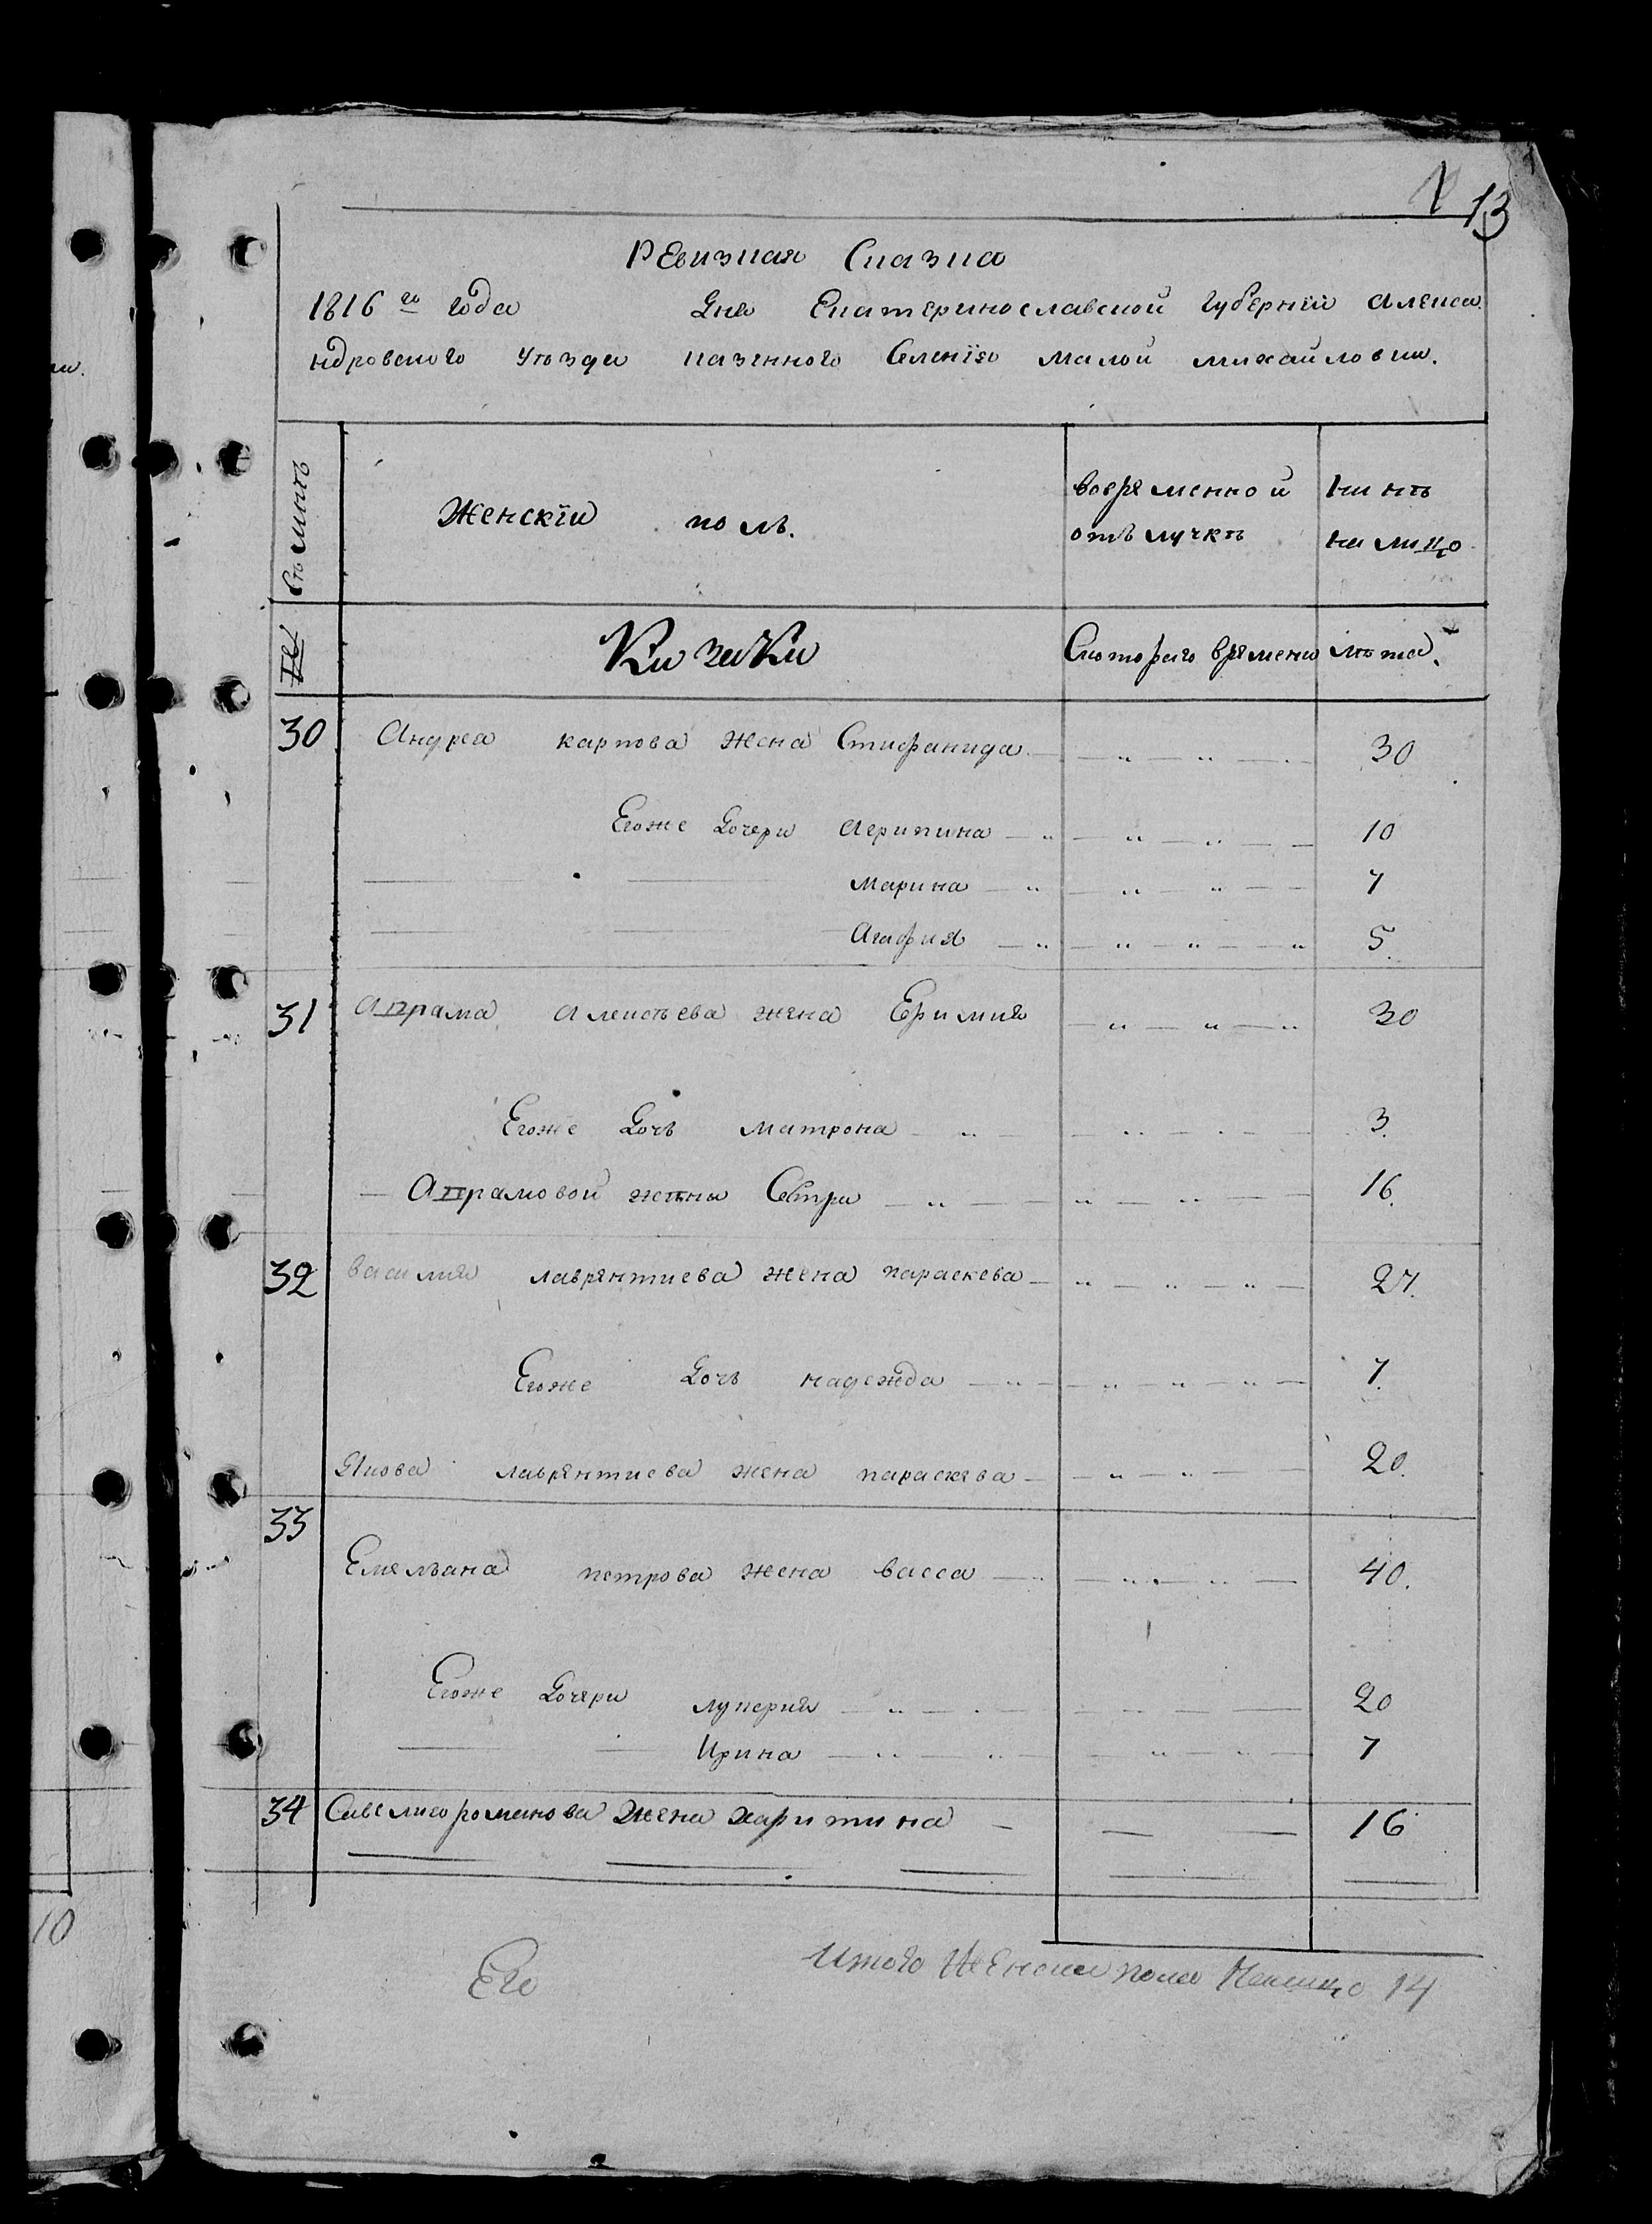 13
Ревизная Сказка
1816 го года Дня Екатеринославской Губернии Алекса
ндровского Уѣзда казенного Селенїя малой михайловки.
Семѣи
Женскїи полъ.
вовременной
отълучкѣ
нинѣ
на лицо
№
Казаки
Скоторого времени
лѣта.
30 Андрея карпова жена Стифанида 30
Егоже Дочери Агрипина 10
марина 7
Агафия 5.
31 Апрама Алексѣева жена Ефимия 30
Егоже Дочь матрона 3.
Апрамовой жены Сестра 16.
32 василия лаврентиева жена параскева 27.
Егоже Дочь надежда 7.
Якова лаврентиева жена параскева 20.
33
Емельана петрова жена васса 40.
Егоже Дочери лукерия 20
Ирина 7
34 Савелия романова жена харитина 16
10
Его
Итого Женска пола Налицо 14